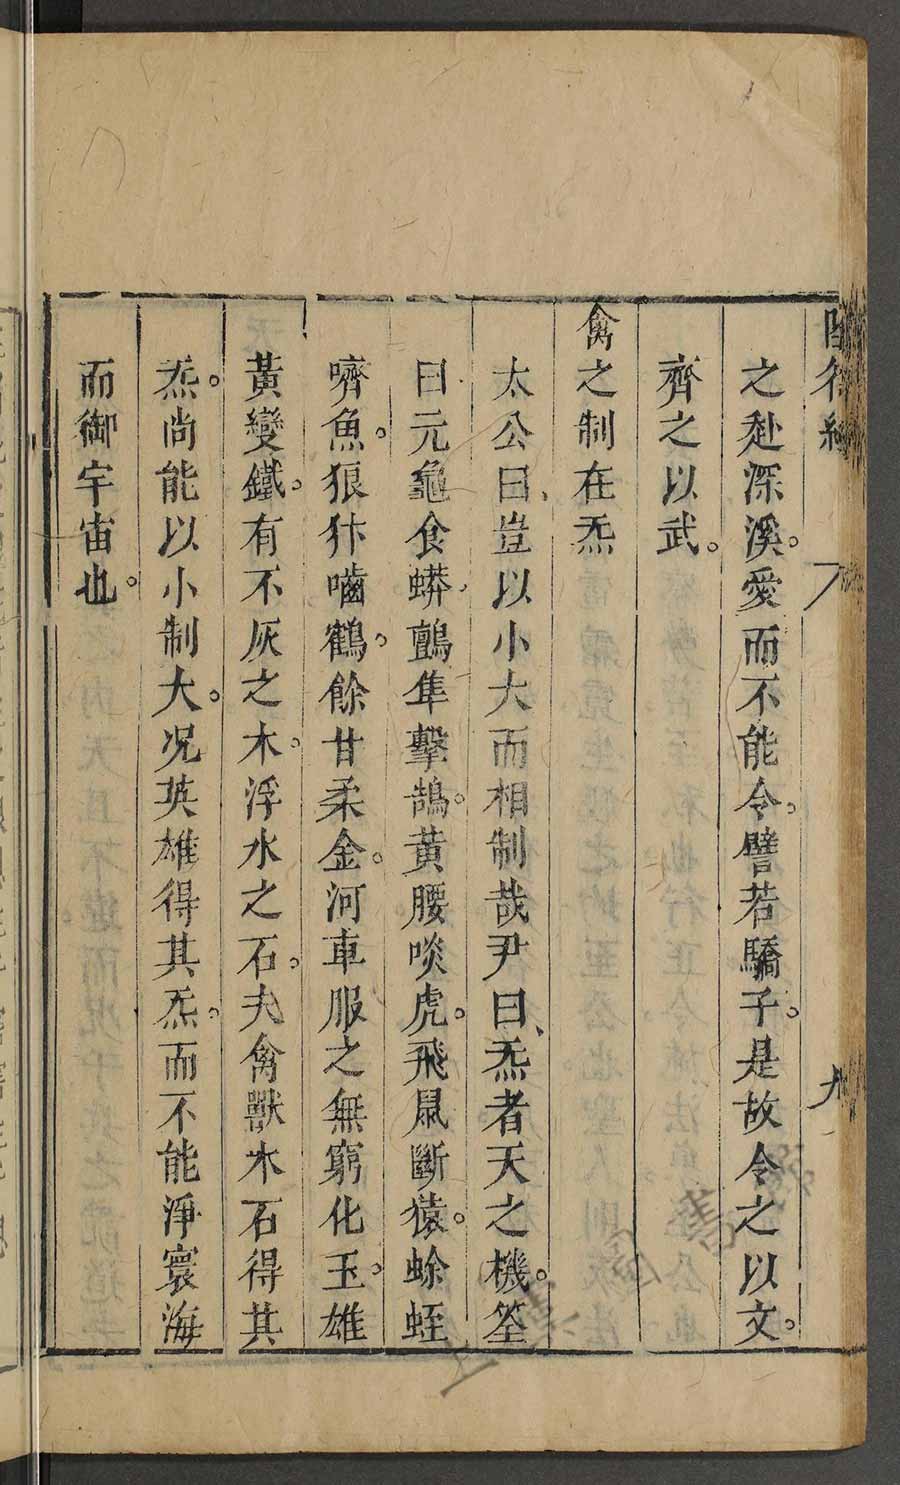 陰符經
九
之赴深溪。愛而不能令。譬若驕子。是故令之以文。
齊之以武。
禽之制在炁
太公曰、豈以小大而相制哉尹曰、炁者天之機。筌
曰元龜食蟒。鸇隼擊鵠。黃腰啖虎。飛鼠斷猿。蜍蛭
嚌魚。狼犿嚙鶴。餘甘柔金。河車服之無窮化玉。雄
黃變鐵。有不灰之木。浮水之石。夫禽獸木石得其
炁。尚能以小制大。况英雄得其炁。而不能淨寰海
而御宇宙也。